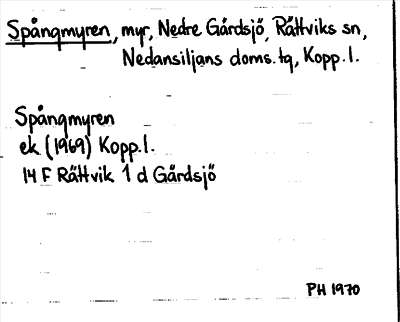 Spångmyren, myr, Nedre Gårdsjö, Rättviks sn,
Nedansiljans doms.tg, Kopp.l.
Spångmyren
ek (1969) Kopp.l.
14 F Rättvik 1 d Gårdsjö
PH 1970